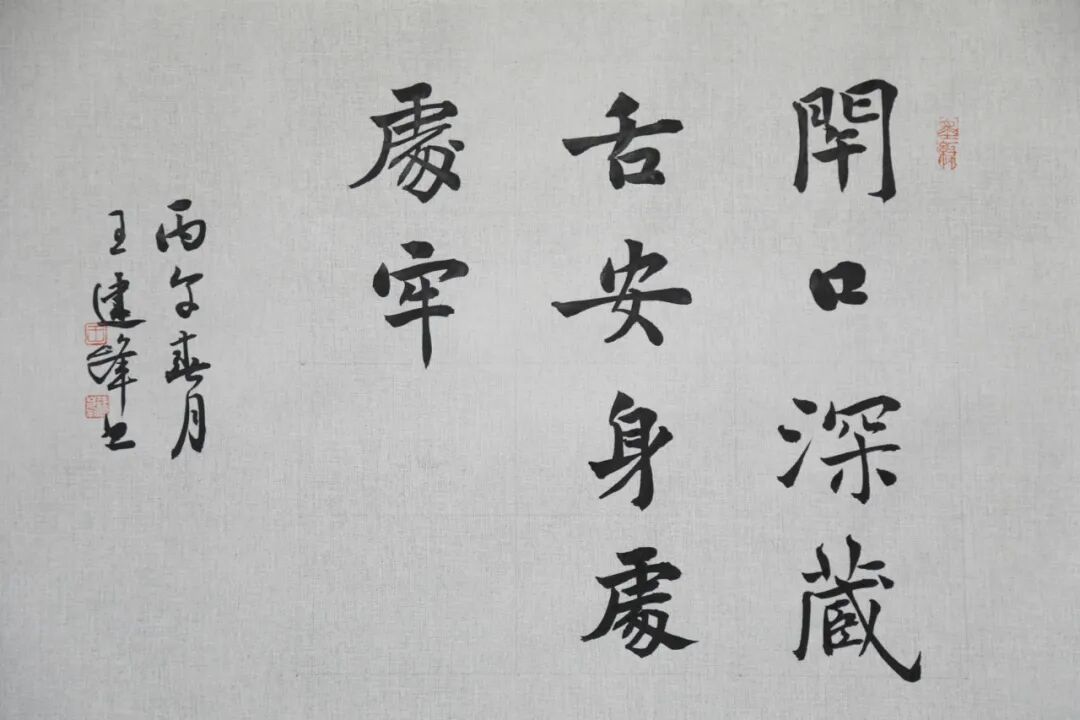 閉口深藏
舌安身處
處牢
丙午春月
王建峰书